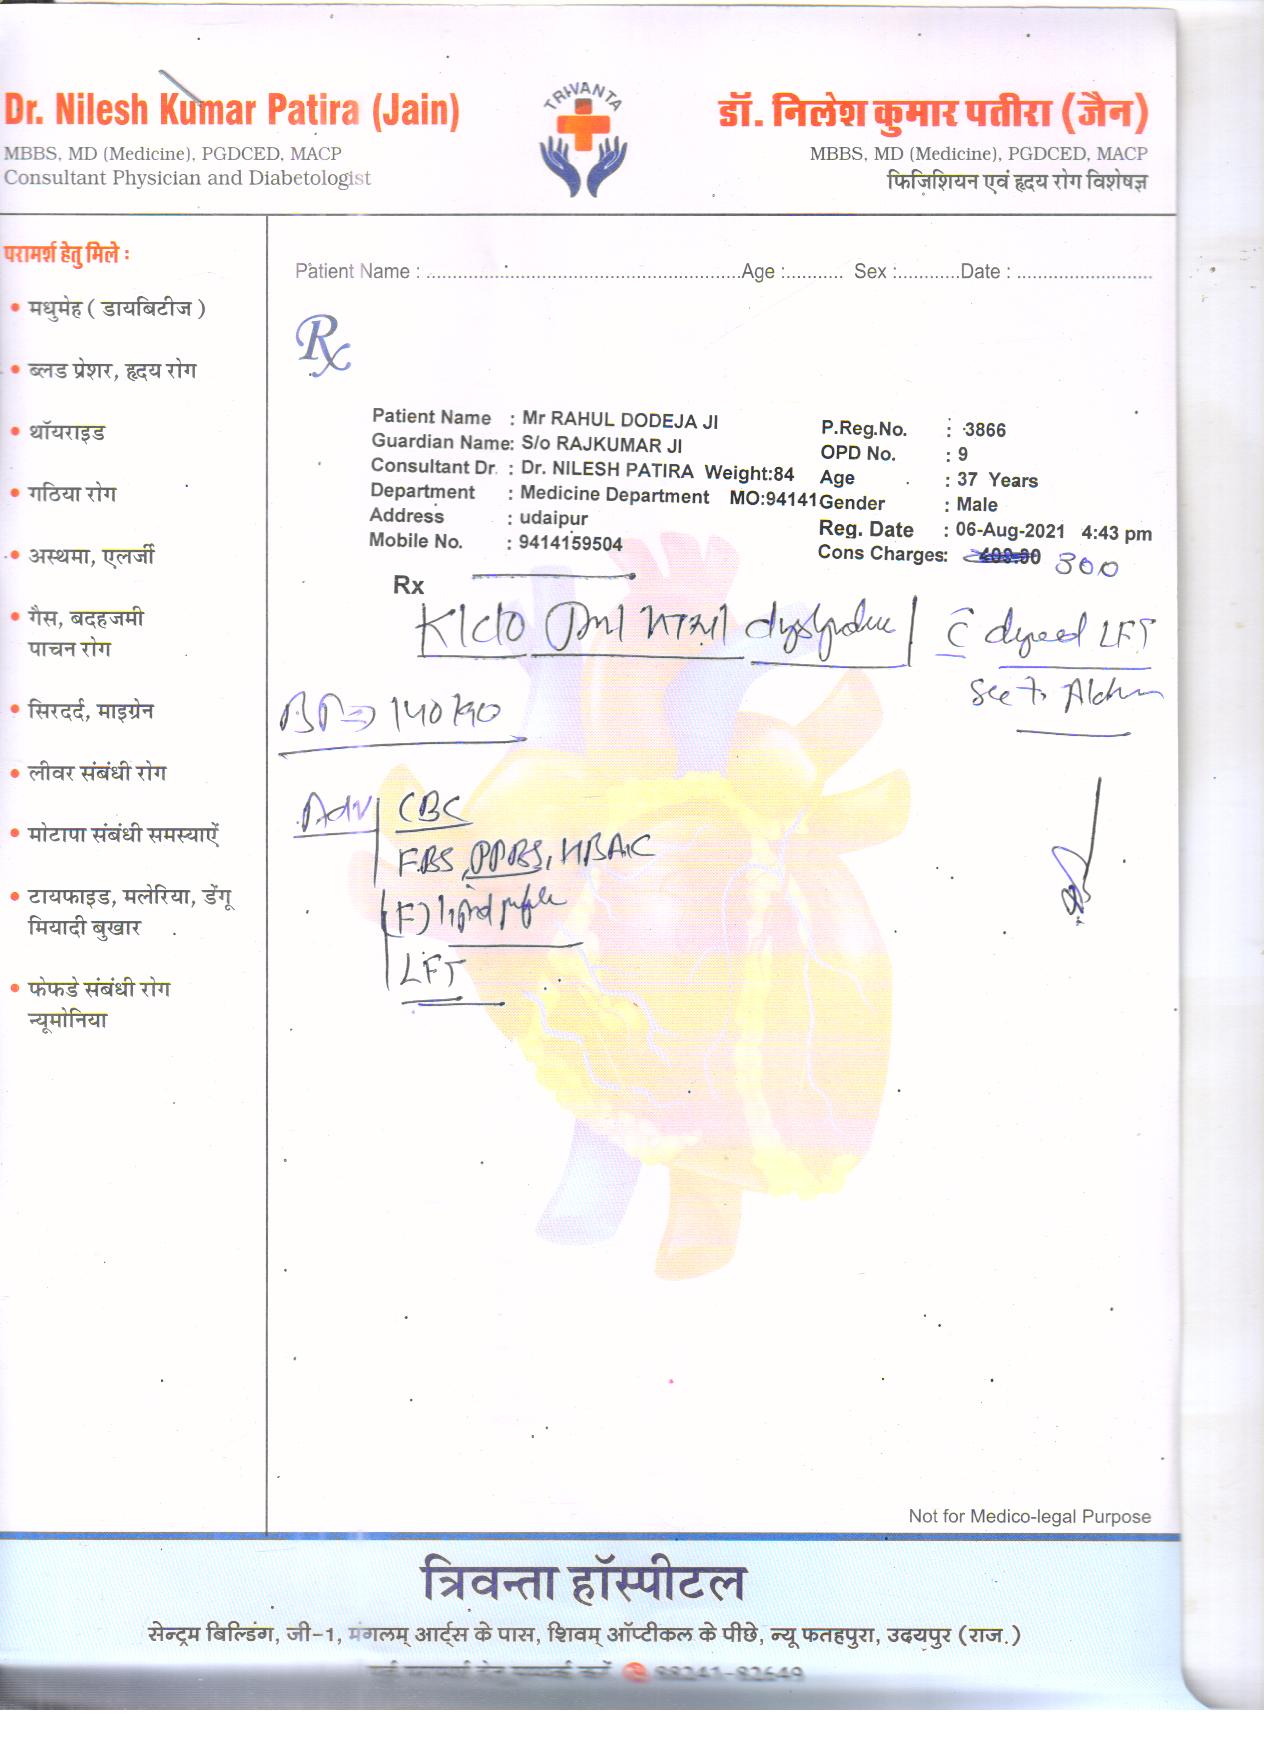 Dr. Nilesh Kumar Patira (Jain)
MBBS, MD (Medicine), PGDCED, MACP
Consultant Physician and Diabetologist
TRIVANTA
डॉ. निलेश कुमार पतीरा (जैन)
MBBS, MD (Medicine), PGDCED, MACP
फिजिशियन एवं हृदय रोग विशेषज्ञ
परामर्श हेतु मिले :
• मधुमेह ( डायबिटीज )
• ब्लड प्रेशर, हृदय रोग
• थॉयराइड
• गठिया रोग
• अस्थमा, एलर्जी
• गैस, बदहजमी
पाचन रोग
• सिरदर्द, माइग्रेन
• लीवर संबंधी रोग
• मोटापा संबंधी समस्याऐं
• टायफाइड, मलेरिया, डेंगू
मियादी बुखार
• फेफडे संबंधी रोग
न्यूमोनिया
Patient Name : Age : Sex : Date :
Rx
Patient Name : Mr RAHUL DODEJA JI
Guardian Name: S/o RAJKUMAR JI
Consultant Dr. : Dr. NILESH PATIRA Weight:84
Department : Medicine Department MO:94141
Address : udaipur
Mobile No. : 9414159504
P.Reg.No. : 3866
OPD No. : 9
Age : 37 Years
Gender : Male
Reg. Date : 06-Aug-2021 4:43 pm
Cons Charges: 400.00 300
Rx
K/c/o LFT
BP → 140/90
Adv CBC
FBS, PPBS, HBA1C
(F) lipid profile
LFT
Not for Medico-legal Purpose
त्रिवन्ता हॉस्पीटल
सेन्ट्रम बिल्डिंग, जी-1, मंगलम् आर्ट्स के पास, शिवम् ऑप्टीकल के पीछे, न्यू फतहपुरा, उदयपुर (राज.)